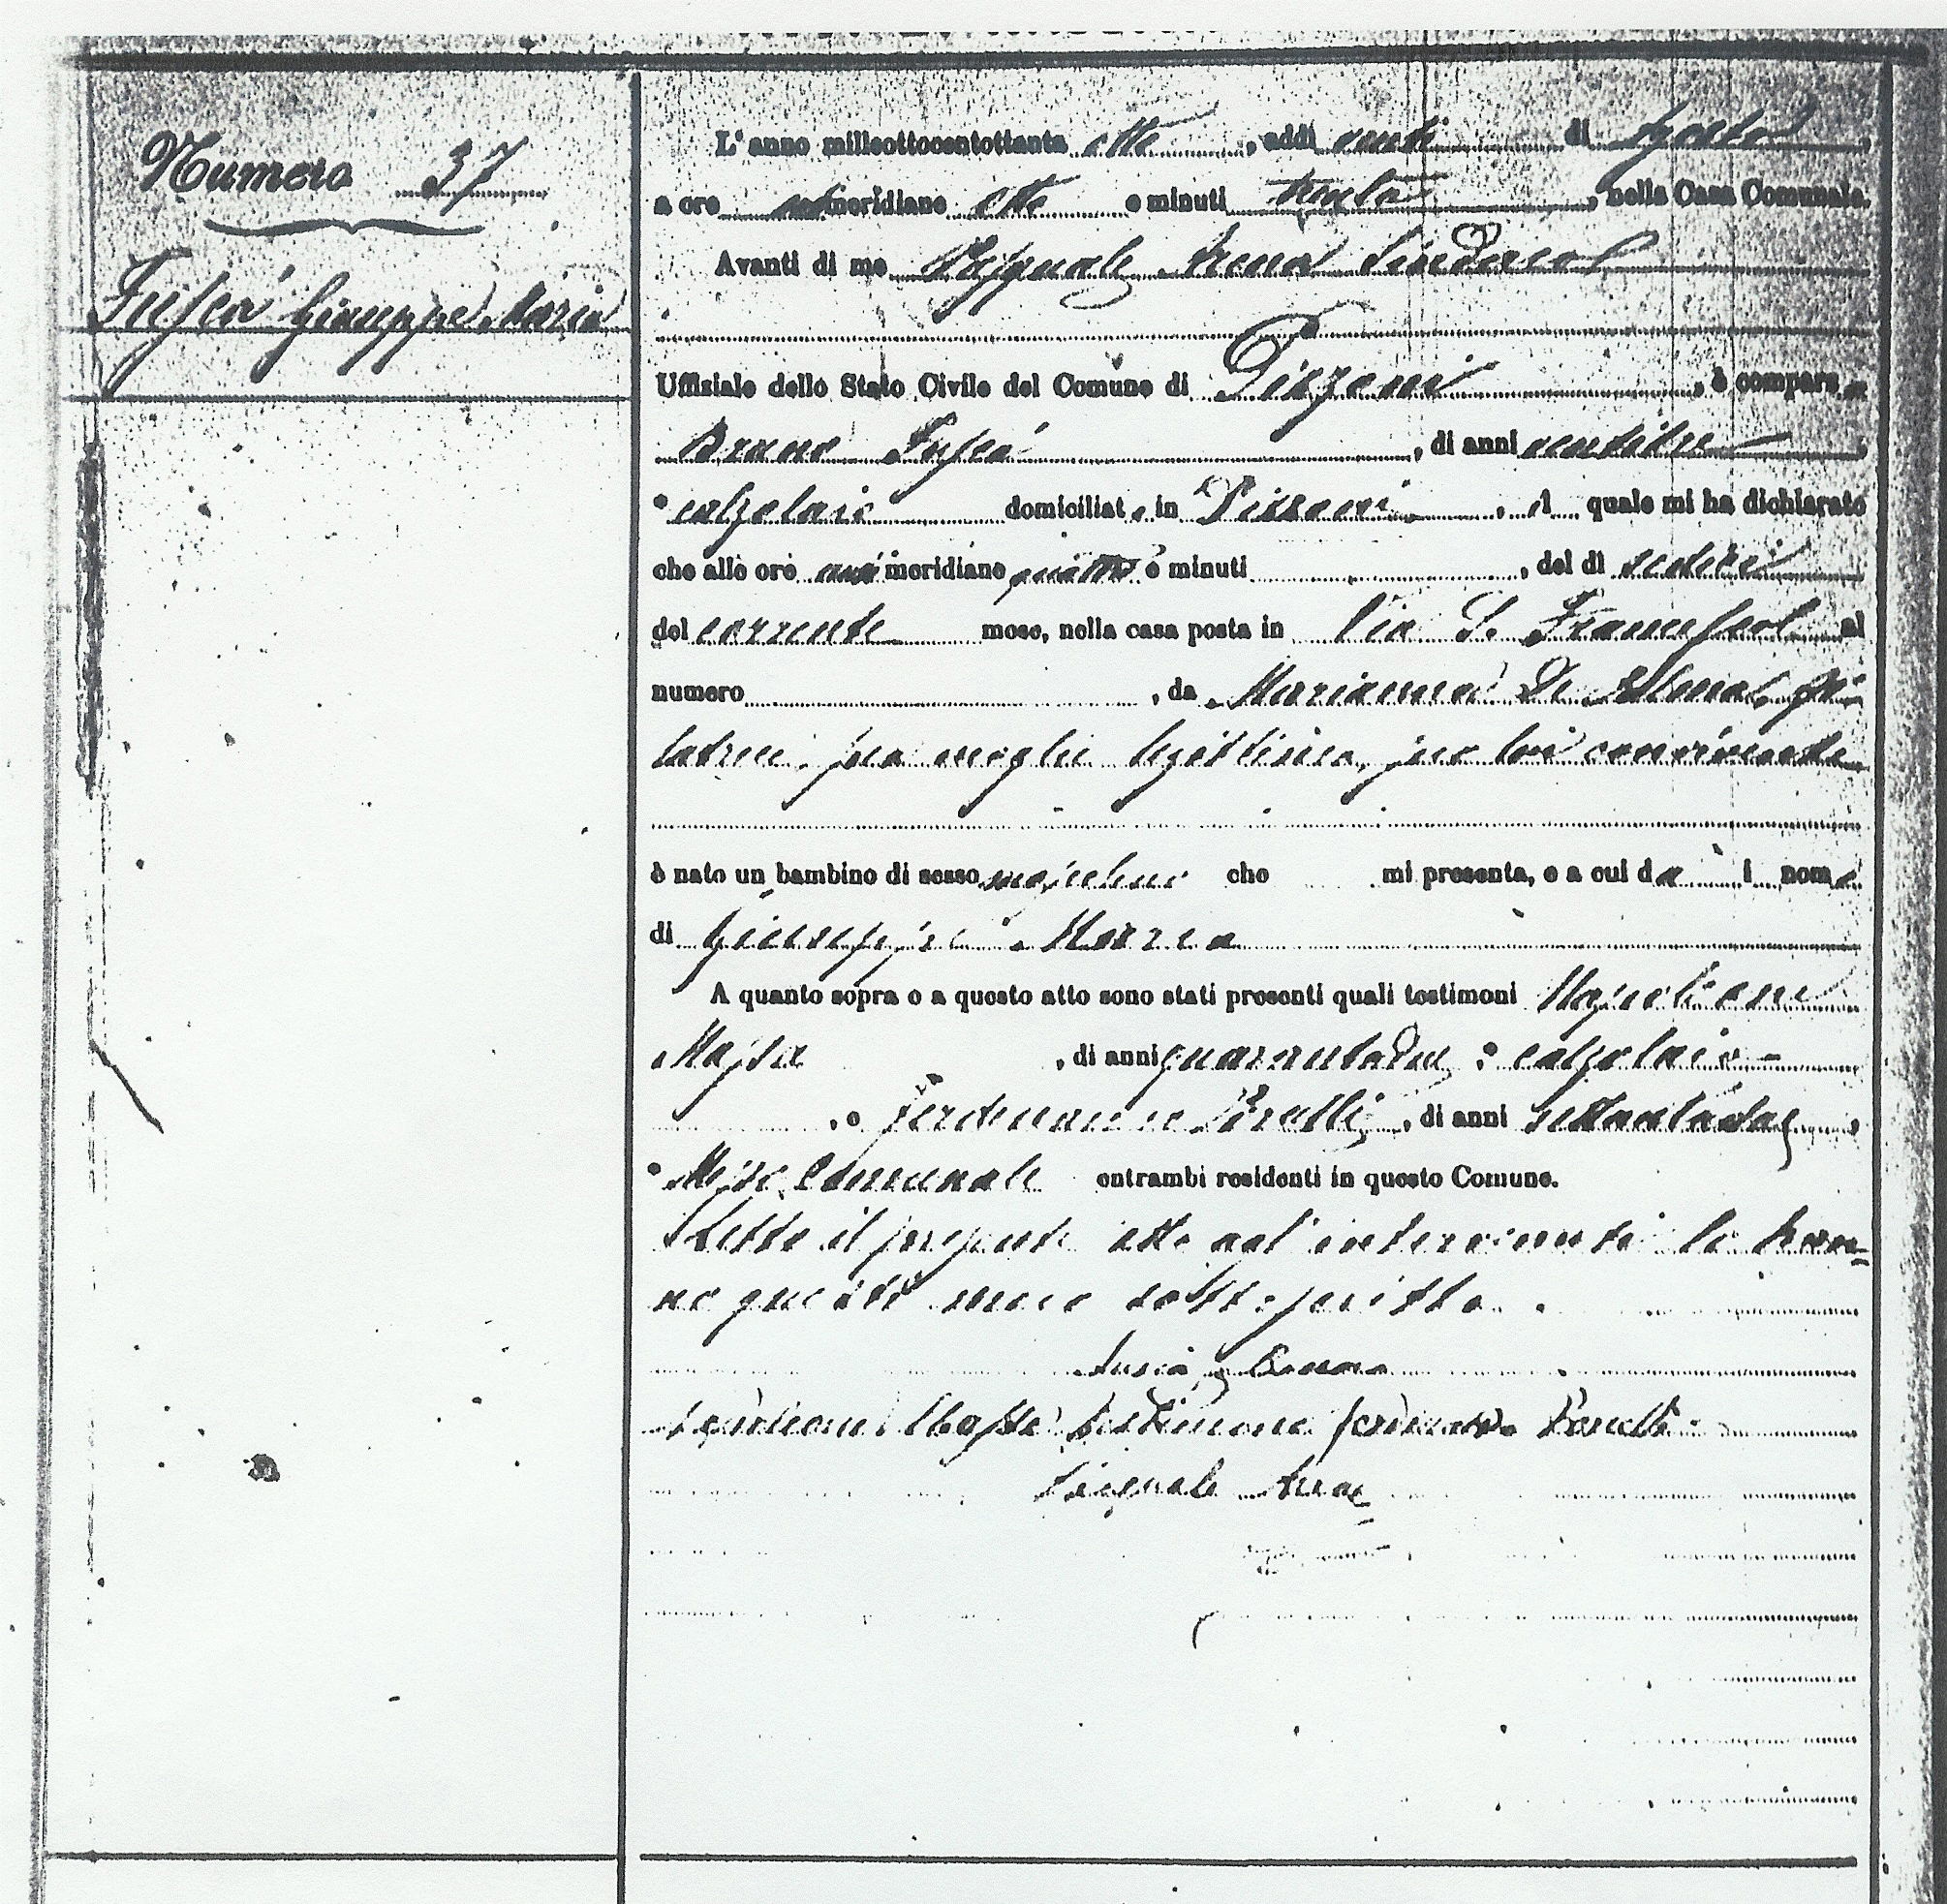 Numero 37
Fuscà Giuseppe Maria
L'anno milleottocentottanta otto, addì venti di Agosto,
a ore antimeridiane otto e minuti trenta, nella Casa Comunale.
Avanti di me Pasquale Arena Sindaco
Uffiziale dello Stato Civile del Comune di Pizzoni, è comparso
Bruno Fuscà, di anni ventitre,
calzolaio domiciliato in Pizzoni, il quale mi ha dichiarato
che alle ore antimeridiane quattro e minuti, del dì sedici
del corrente mese, nella casa posta in Via S. Francesco al
numero, da Marianna De
sua moglie legittima, seco lui convivente
è nato un bambino di sesso mascolino che mi presenta, e a cui dà i nome
di Giuseppe Maria
A quanto sopra e a questo atto sono stati presenti quali testimoni Napoleone
Massa, di anni quarantadue, calzolaio
, e Ferdinando Porelli, di anni settantadue,
Messo Comunale entrambi residenti in questo Comune.
Letto il presente atto agl'intervenuti lo han=
no questi meco sottoscritto.
Fuscà Bruno
Napoleone Massa testimone Ferdinando Porelli
Pasquale Arena